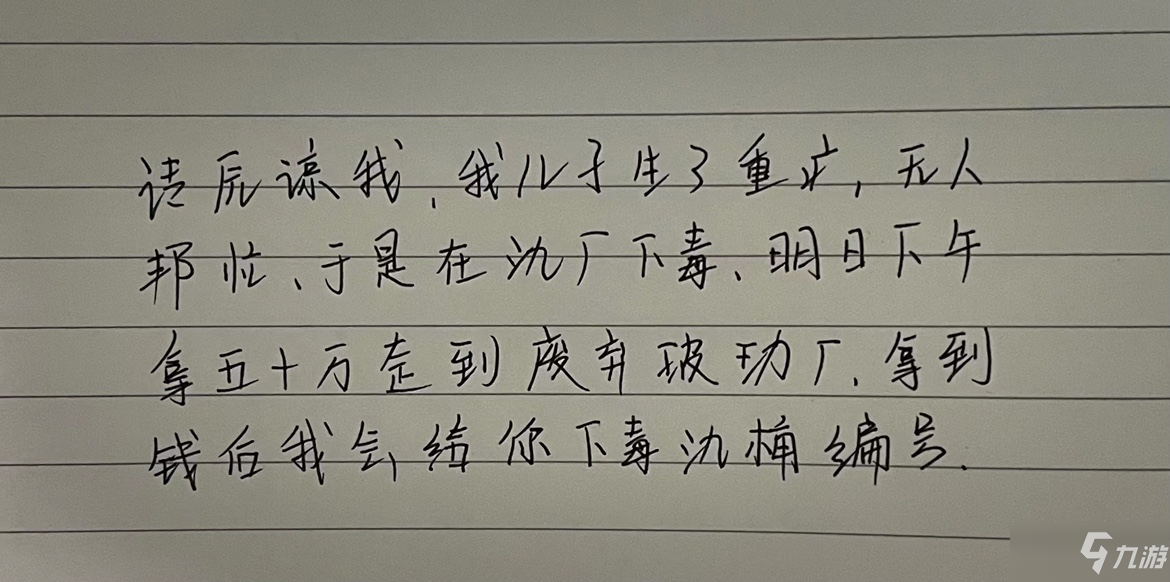 请原谅我,我儿子生了重疒,无人
邦忙、于是在氿厂下毒、明日下午
拿五十万赱到废弃玻玏厂、拿到
钱后我会给你下毒氿桶编号.
九游